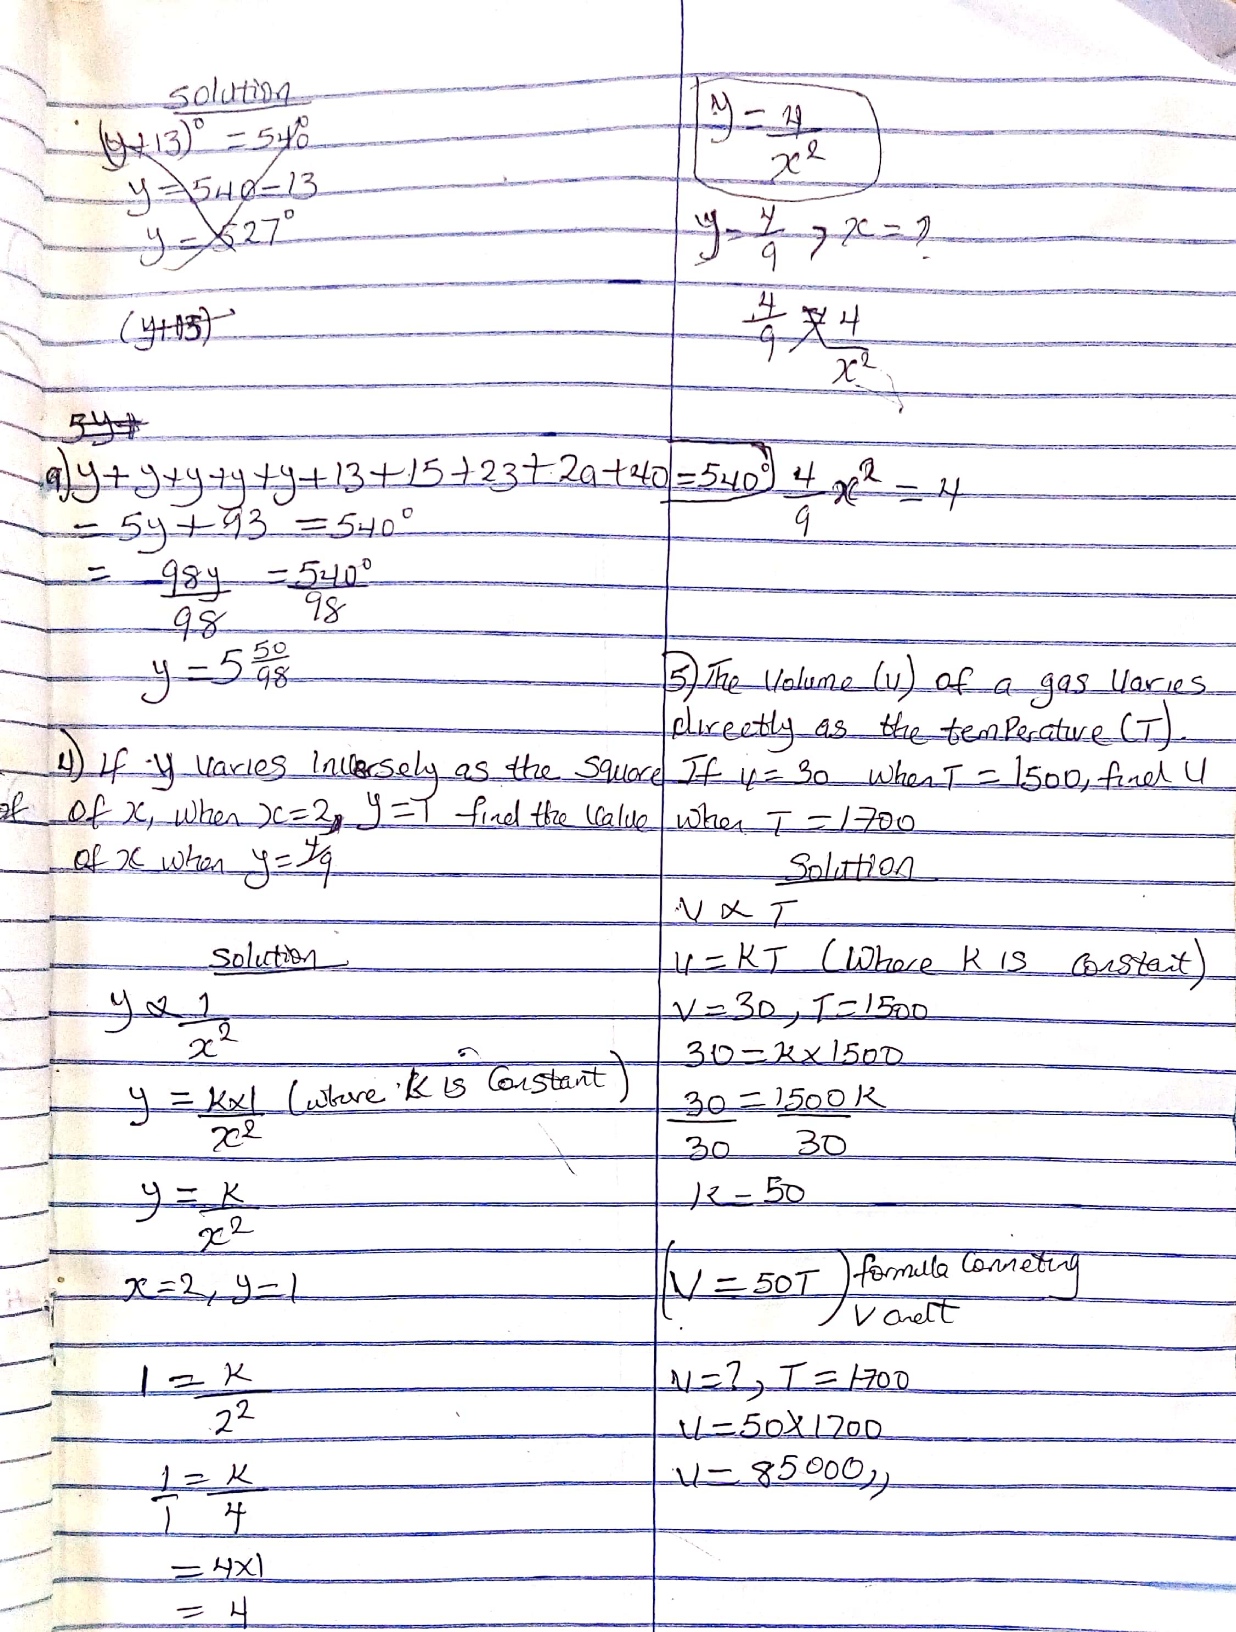 solution
(y+13)° = 540°
y = 540-13
y = 527°
(y+13)
5y+
a) y+y+y+y+y+13+15+23+2a+40=540°
= 5y+93 = 540°
= 98y/98 = 540°/98
y = 5 50/98
4) If y varies inversely as the square
of x, when x=2, y=1 find the value
of x when y=4/9
solution
y ∝ 1/x²
y = kx1/x² (where k is constant)
y = k/x²
x=2, y=1
1 = k/2²
1/1 = k/4
= 4x1
= 4
y = 4/x²
y = 4/9, x = ?
4/9 = 4/x²
4/9 x² = 4
5) The Volume (v) of a gas varies
directly as the temperature (T).
If v = 30 when T = 1500, find v
when T = 1700
Solution
V ∝ T
V = KT (Where K is constant)
V = 30, T = 1500
30 = K x 1500
30/30 = 1500K/30
k = 50
(V = 50T) formula Conneting
V and T
V=?, T = 1700
V = 50X1700
V = 85000,,